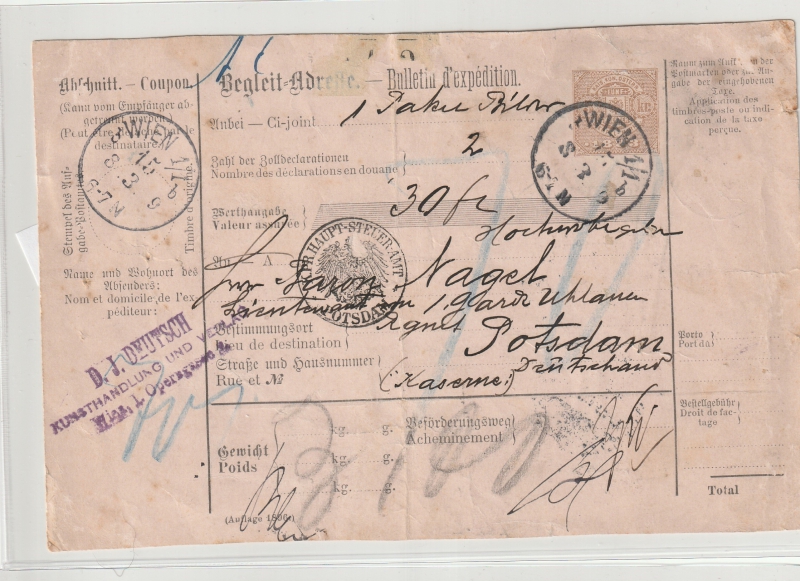 Abschnitt. — Coupon.
(Kann vom Empfänger ab-
getrennt werden)
(Peut être détaché par le
destinataire)
WIEN 1/1
15
3
6-7 N
Stempel des Auf-
gabe-Postamtes
Timbre d'origine
Name und Wohnort des
Absenders:
Nom et domicile de l'ex-
péditeur:
D. J. DEUTSCH
KUNSTHANDLUNG UND
Wien, I. Operngasse
Begleit-Adresse. — Bulletin d'expédition.
Anbei - Ci-joint
1 Paket Bilder
Zahl der Zolldeclarationen
Nombre des déclarations en douane
2
Werthangabe
Valeur assurée
30 fl
Hochwohlgeboren
An - A
Baron Nagel
Lieutenant im 1. Garde Uhlanen
Regmt
PR. HAUPT-STEUER-AMT
POTSDAM
Bestimmungsort
Lieu de destination
Potsdam
Straße und Hausnummer
Rue et №
(Kaserne)
Deutschland
Gewicht
Poids
kg. g.
kg. g.
kg. g.
Beförderungsweg
Acheminement
(Auflage 1890.)
WIEN 1/1
3
6-7 N
Raum zum Aufkleben der
Postmarken oder zur An-
gabe der eingehobenen
Taxe.
Application des
timbres-poste ou indi-
cation de la taxe
perçue.
Porto
Port dû
Bestellgebühr
Droit de fac-
tage
Total